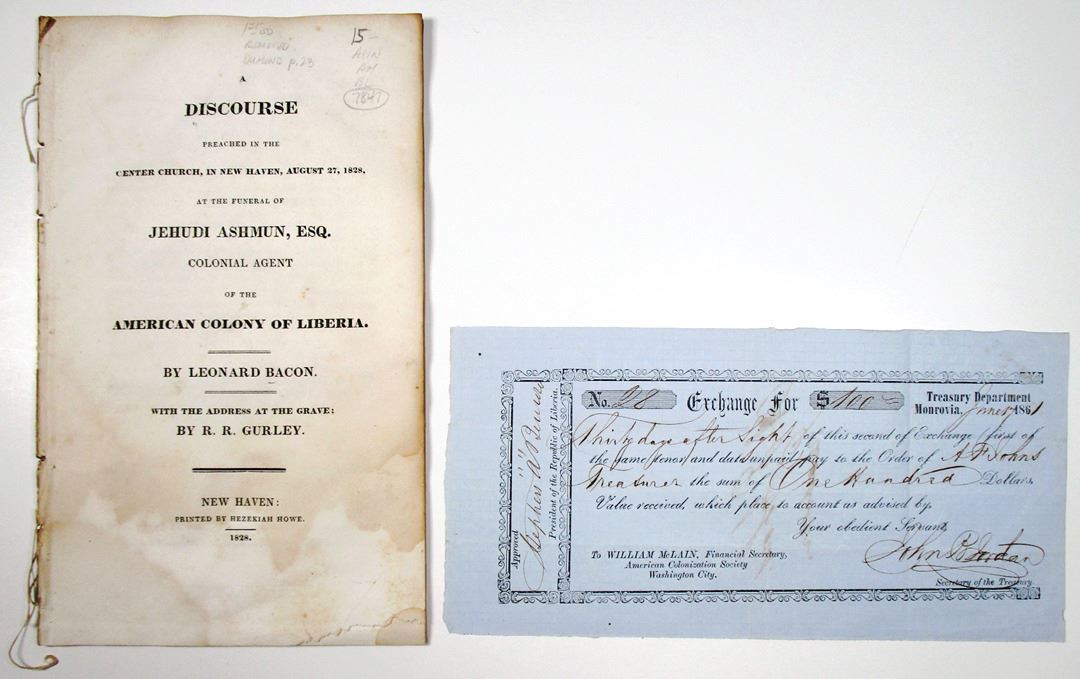 15-
p.23
7847
A
DISCOURSE
PREACHED IN THE
CENTER CHURCH, IN NEW HAVEN, AUGUST 27, 1828.
AT THE FUNERAL OF
JEHUDI ASHMUN, ESQ.
COLONIAL AGENT
OF THE
AMERICAN COLONY OF LIBERIA.
BY LEONARD BACON.
WITH THE ADDRESS AT THE GRAVE:
BY R. R. GURLEY.
NEW HAVEN:
PRINTED BY HEZEKIAH HOWE.
1828.
Approved
Stephen A Benson
President of the Republic of Liberia.
No. 28 Exchange For $ 100 Treasury Department
Monrovia, June 1861
Thirty days after Sight of this second of Exchange first of
the same tenor and date unpaid pay to the Order of A F Johns
Treasurer the sum of One Hundred Dollars,
Value received, which place to account as advised by,
Your obedient Servant,
John
Secretary of the Treasury.
To WILLIAM McLAIN, Financial Secretary,
American Colonization Society
Washington City.